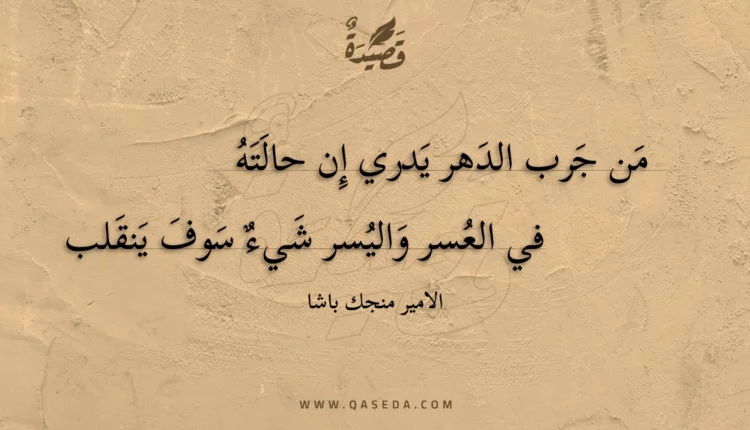 قَصِيدَةٌ
مَن جَرب الدَهر يَدري إِن حالَتَهُ
في العُسر وَاليُسر شَيءٌ سَوفَ يَنقَلب
الامير منجك باشا
WWW.QASEDA.COM